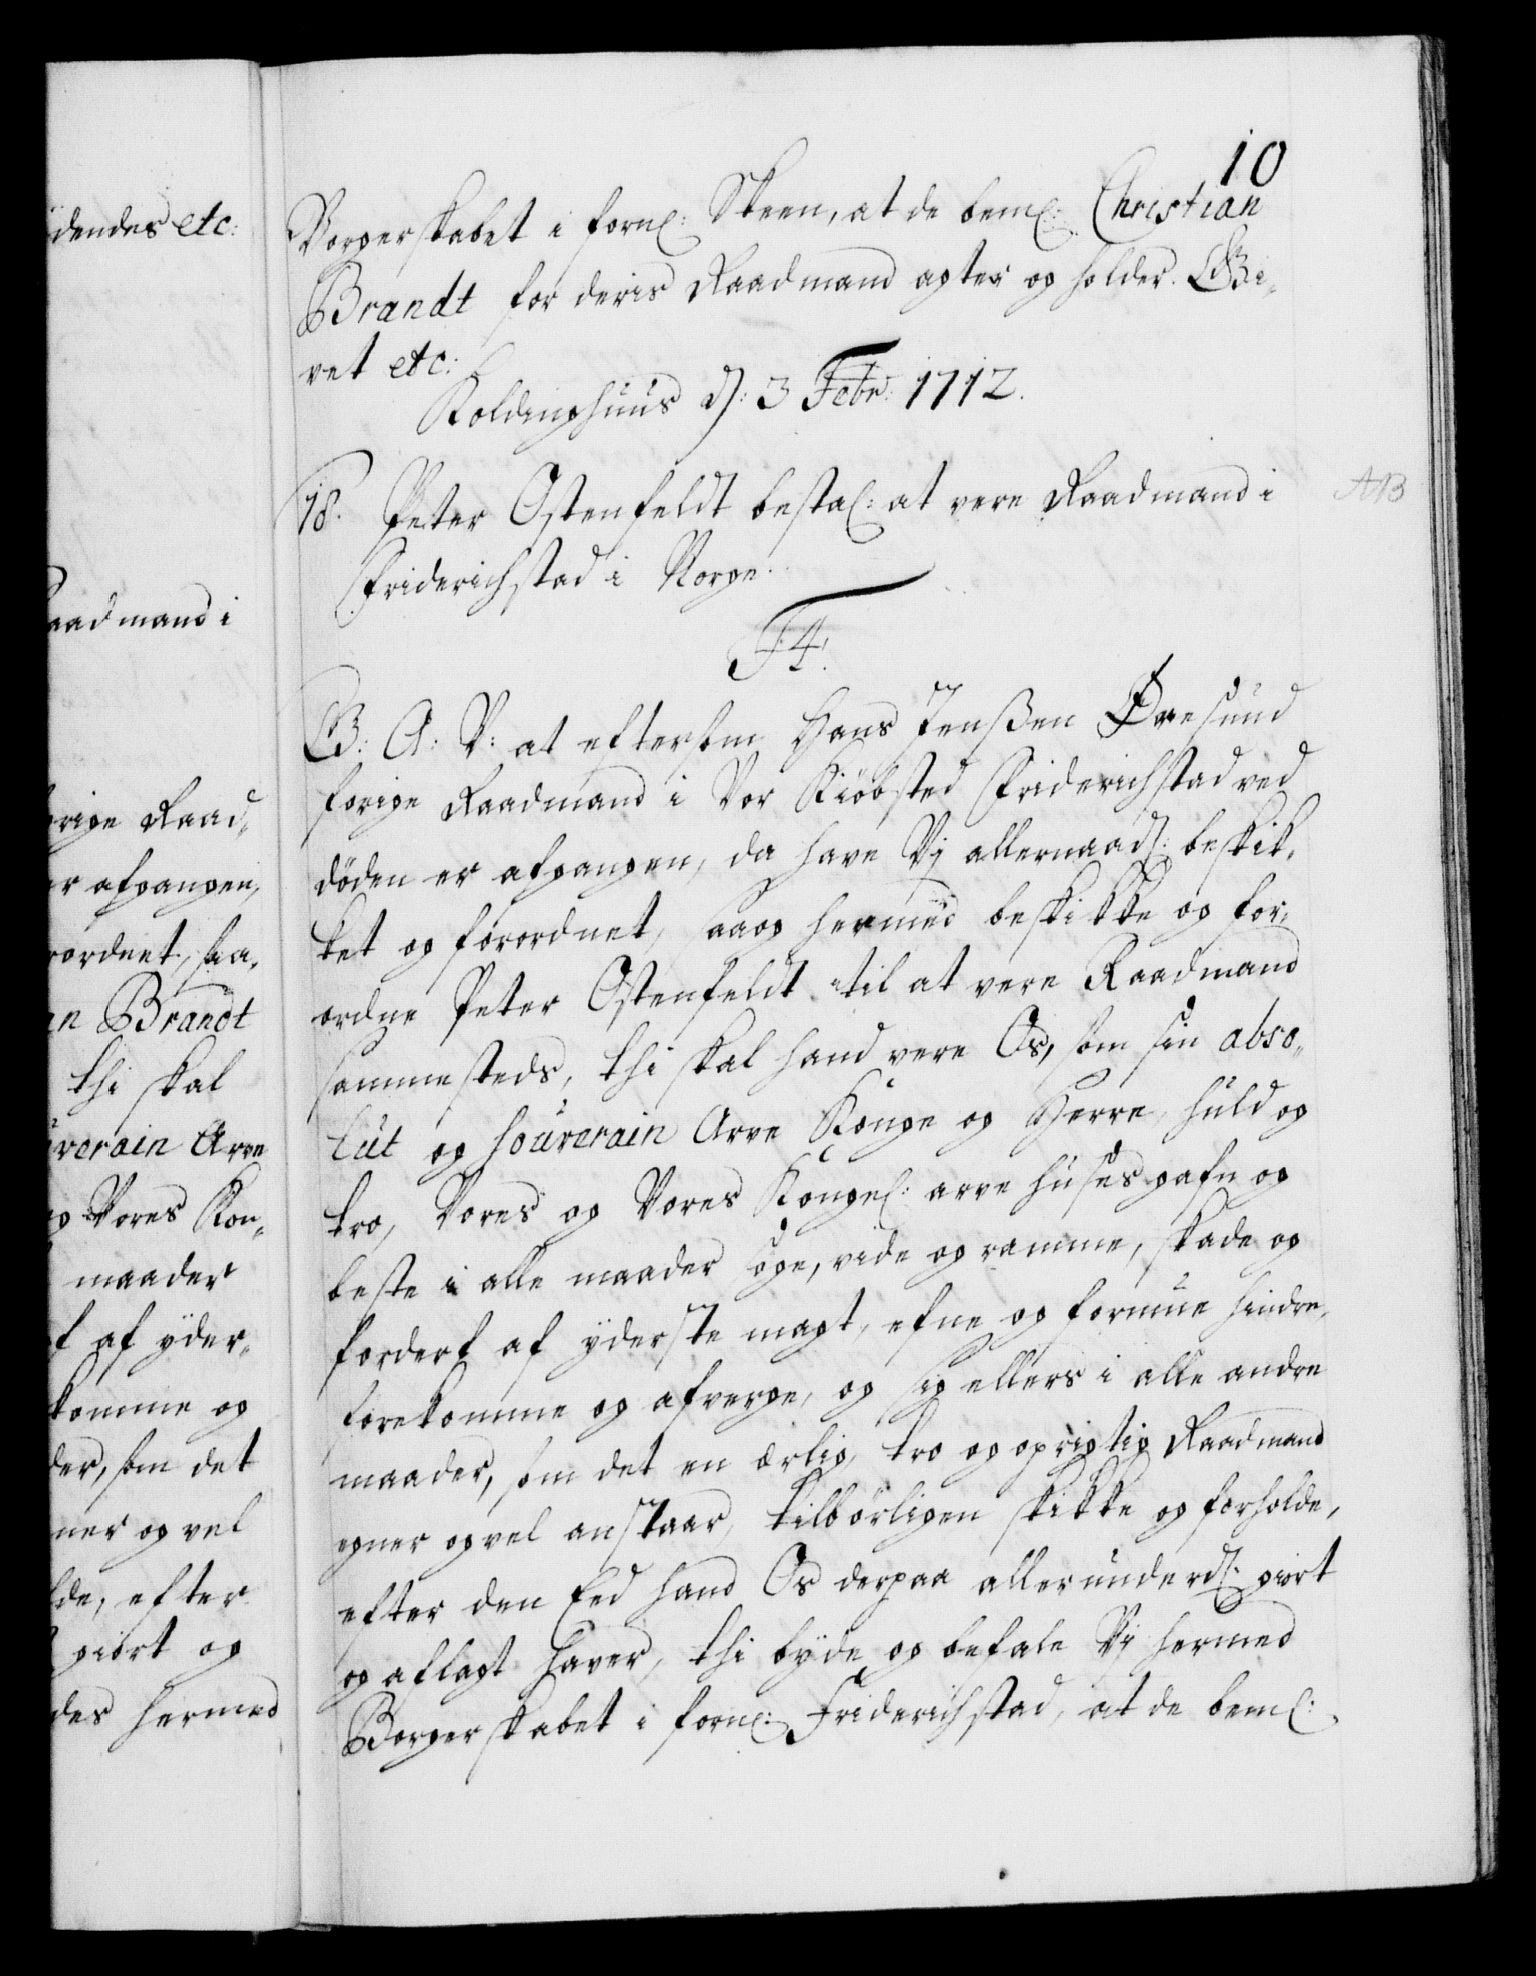 10
Borgerskabet i forn: Skeen, at de bem: Christian
Brandt for deris Raadmand agter og holder. Gi-
vet etc:
Koldinghuus d: 3 Febr: 1712.
18. Peter Ostenfeldt bestal: at vere Raadmand i
Friderichstad i Norge.
F4.
G: A: V: at eftersom Hans Jenßen Øresund
forige Raadmand i Vor Kiöbsted Friderichstad ved
döden er afgangen, da have Vj allernaad: beskik-
ket og forordnet, saa og hermed beskikke og for-
ordne Peter Ostenfeldt til at vere Raadmand
sammesteds, thi skal hand vere Os, som sin abso-
lut og souverain Arve Konge og Herre, huld og
tro, Vores og Vores Kongel: arve huses gafn og
beste i alle maader söge, vide og ramme, skade og
forderf af ÿderste magt, efne og formue hindre,
forekomme og afverge, og sig ellers i alle andre
maader, som det en ærlig, tro og oprigtig Raadmand
egner og vel anstaar, tilbörligen skikke og forholde,
efter den Eed hand Os derpaa allerunderd: giort
og aflagt haver, thi byde og befale Vj hermed
Borgerskabet i forn: Friderichstad, at de bem:
dendes etc:
aadmand i
orige Raad-
er afgangen,
rordnet, saa-
an Brandt
thi skal
uverain Arve
og Vores Kon-
maader
f af ÿder-
komme og
der, som det
ner og vel
lde, efter
giort og
des hermed